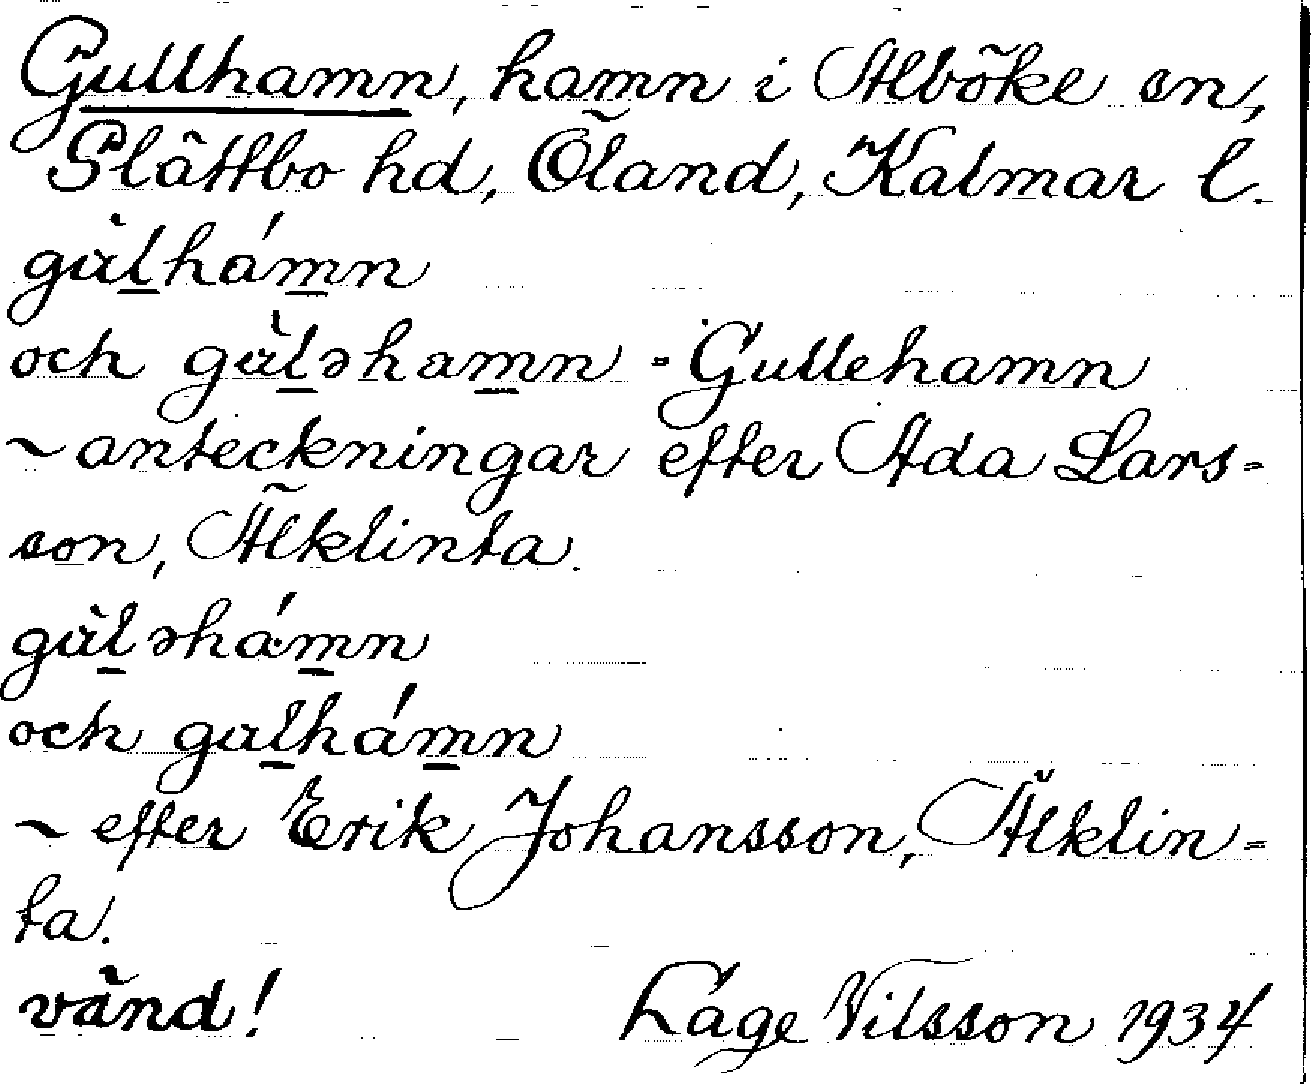 Gullhamn, hamn i Alböke sn,
Slättbo hd, Öland, Kalmar l.
gùlhámn
och gùləhamn - Gullehamn
~ anteckningar efter Ada Lars-
son, Älklinta.
gùləhámn
och gulhámn
~ efter Erik Johansson, Älklin-
ta.
vänd! Låge Nilsson 1934